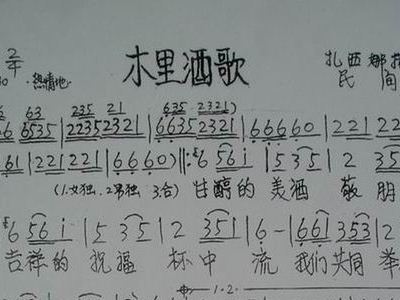 木里酒歌
2/4 热情地 扎西娜
民间
6 63 235 21 635 2321)
66 6535 | 22352321 | 66352321 | 66660 | 221 22
61 | 221221 | 6660) ‖: 6 56i | 535 | 2 35
(1.女独 2.男独 3.合) 甘醇的 美酒 敬 朋
6 56i | 5 35 | 2 351 | 6 - | 661 353 | 2
吉祥的 祝福 杯中 流 我们共同 举
1.2.